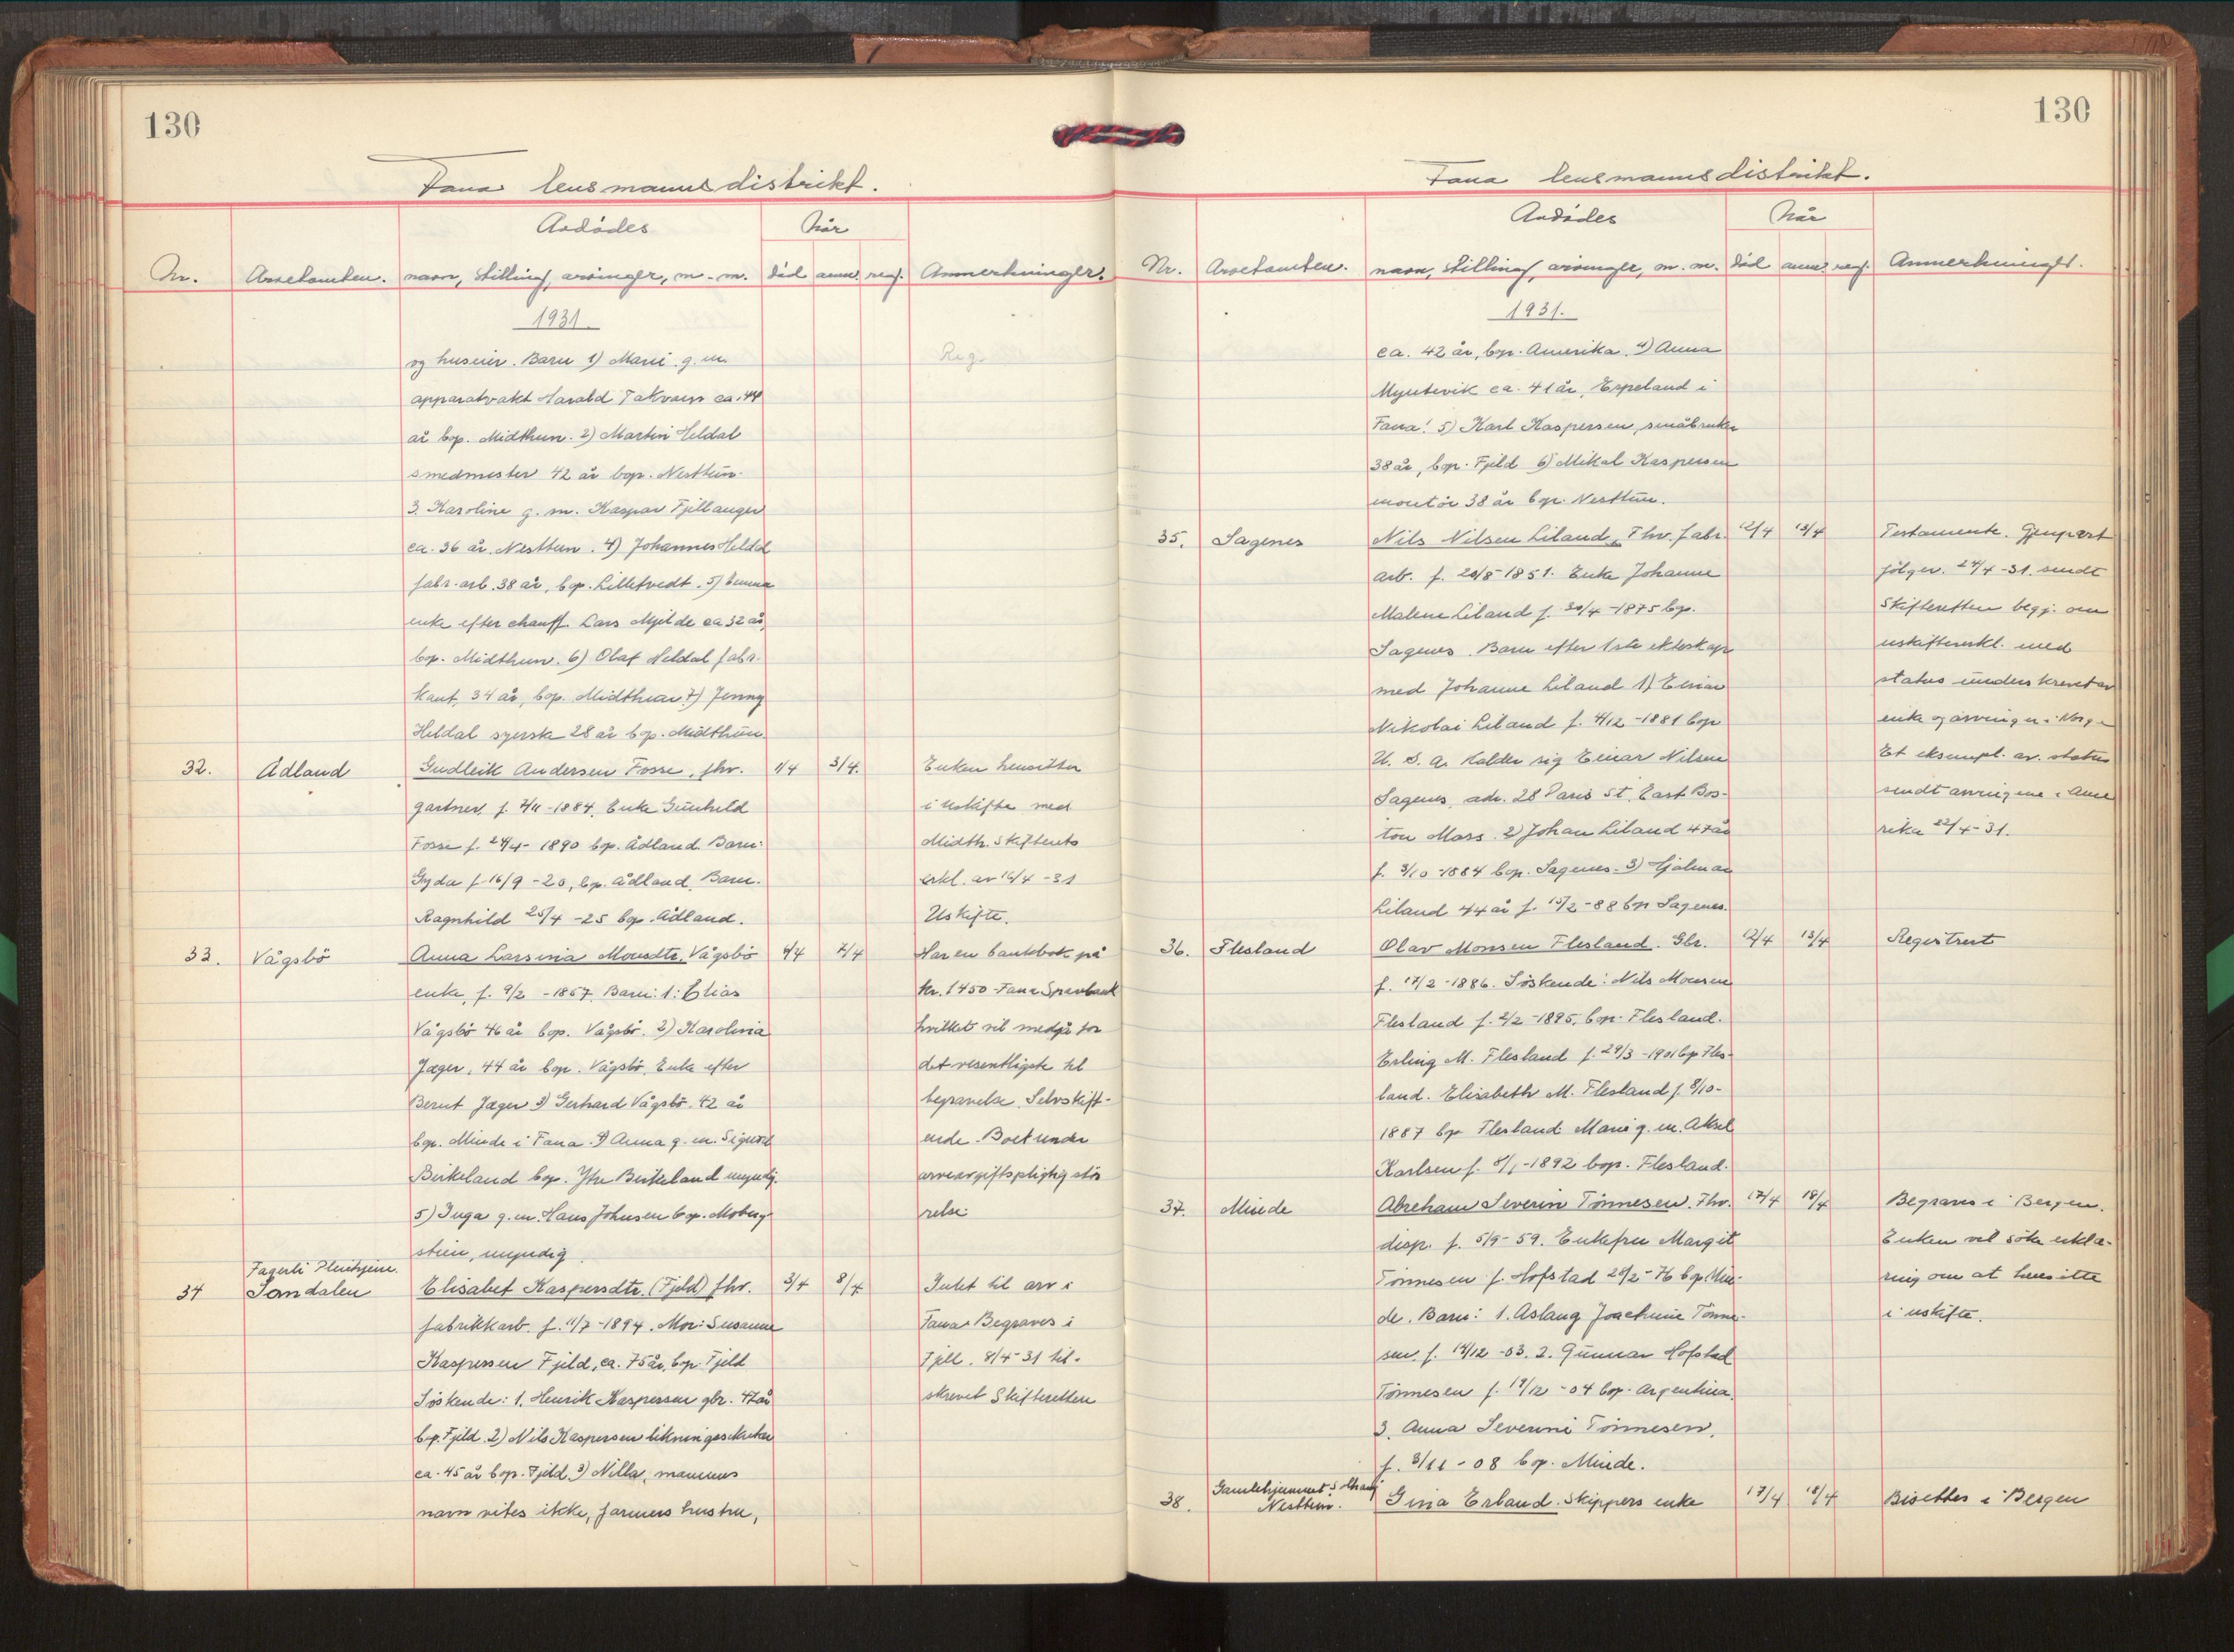 130
Fana lensmannsdistrikt.
Avdødes
Når
Nr. Arvetomten. navn, stilling, arvinger, m. m. død anm. reg. Anmerkninger.
1931
og huseier. Barn 1) Marie g. m.
Reg.
apparatvakt Harald Takvam ca. 44
år bop. Midthun. 2) Martin Heldal
smedmester 42 år bop. Nesttun.
3. Karoline g. m. Kaspar Fjellanger
ca. 36 år. Nesttun. 4) Johannes Heldal
fabr. arb. 38 år, bop. Lilletvedt. 5) Emma
enke efter chauff. Lars Mjelde ca 32 år,
bop. Midthun. 6) Olaf Heldal fabr.
kant, 34 år, bop. Midthun 7) Jenny
Heldal syerske 28 år bop. Midthun
32. Ådland Gudleik Andersen Fosse, fhv. 1/4 3/4. Enken hensitter
gartner, f. 7/11-1884. Enke Gunhild i uskifte med
Fosse f. 24/4-1890 bop. Ådland. Barn: Midth. Skifteretts
Gyda f. 16/9-20, bop. Ådland, Barn. erkl. av 16/4-31
Ragnhild 25/4-25 bop. Ådland. Uskifte.
33. Vågsbö Anna Larsina Monsdtr. Vågsbö 4/4 7/4 Har en bankbok på
enke, f. 9/2-1857. Barn: 1: Elias kr. 1450 Fana Sparebank
Vågsbö 46 år bop. Vågsbö. 2) Karolina hvilket vil medgå for
Jæger, 44 år bop. Vågsbö, Enke efter det vesentligste til
Bernt Jæger 3) Gerhard Vågsbö. 42 år begravelse. Selvskift-
bop. Minde i Fana. 4) Anna g. m. Sigurd ende. Boet under
Birkeland bop. Ytre Birkeland myndig. arveavgiftspligtig stör
5) Inga g. m. Hans Johnsen bop. Moberg relse.
stien, myndig.
Fagerli Pleiehjem.
34 Sandalen Elisabet Kaspersdtr. (Fjeld) fhv. 3/4 8/4 Intet til arv i
fabrikkarb. f. 11/7-1894. Mor: Susanne Fana Begraves i
Kaspersen Fjeld, ca. 75 år, bop. Fjeld Fjell. 8/4-31 til-
Söskende: 1. Henrik Kaspersen gbr. 47 år skrevet Skifteretten
bop. Fjeld. 2) Nils Kaspersen likningssekretær
ca. 45 år bop. Fjeld. 3) Nilla, mannens
navn vites ikke, farmers hustru,
130
Fana lensmannsdistrikt.
Avdødes
Når
Nr. Arvetomten. navn, stilling, arvinger, m. m. død anm. reg. Anmerkninger.
1931.
ca. 42 år, bop. Amerika. 4) Anna
Myntevik ca. 41 år, Espeland i
Fana. 5) Karl Kaspersen, småbruker
38 år, bop. Fjeld 6) Mikal Kaspersen
montör 38 år bop. Nesttun.
35. Sagenes Nils Nilsen Liland, Fhv. fabr. 12/4 13/4 Testamente. Gjenpart
arb. f. 20/8-1851. Enke Johanne følger. 24/4-31. sendt
Malene Liland f. 30/4-1875 bop. Skifteretten begj. om
Sagenes. Barn efter 1ste ekteskap uskifteerkl. med
med Johanne Liland 1) Einar status underskrevet av
Nikolai Liland f. 4/12-1881 bop enke og arvinger i Norge
U. S. A. kalder sig Einar Nilsen Et eksempl. av. status
Sagenes, adr. 28 Paris St. East Bos- sendt arvingene i Ame
ton Mass. 2) Johan Liland 47 år rika 22/4-31.
f. 3/10-1884 bop. Sagenes. 3) Hjalmar
Liland 44 år f. 15/2-88 bop Sagenes.
36. Flesland Olav Monsen Flesland. Gbr. 12/4 13/4 Registrert
f. 17/2-1886. Söskende: Nils Monsen
Flesland f. 2/2-1895. bop. Flesland.
Erling M. Flesland f. 29/3-1901 bop Fles-
land. Elisabeth M. Flesland f. 8/10-
1887 bop Flesland Marie g. m. Aksel
Karlsen f. 8/1-1892 bop. Flesland.
37. Minde Abraham Severin Tönnesen. Fhv. 17/4 18/4 Begraves i Bergen.
disp. f. 5/9-59. Enkefru Margit Enken vil söke erklæ-
Tönnesen f. Hofstad 20/2-76 bop. Min- ring om at hensitte
de. Barn: 1. Aslaug Joachime Tönne- i uskifte.
sen, f. 14/12-03. 2. Gunnar Hofstad
Tönnesen f. 19/12-04 bop. Argentina.
3. Anna Severine Tönnesen,
f. 3/11-08 bop. Minde.
Gamlehjemmet Solhaug
38. Nesttun. Gina Erland. Skippers enke 17/4 18/4 Bisettes i Bergen